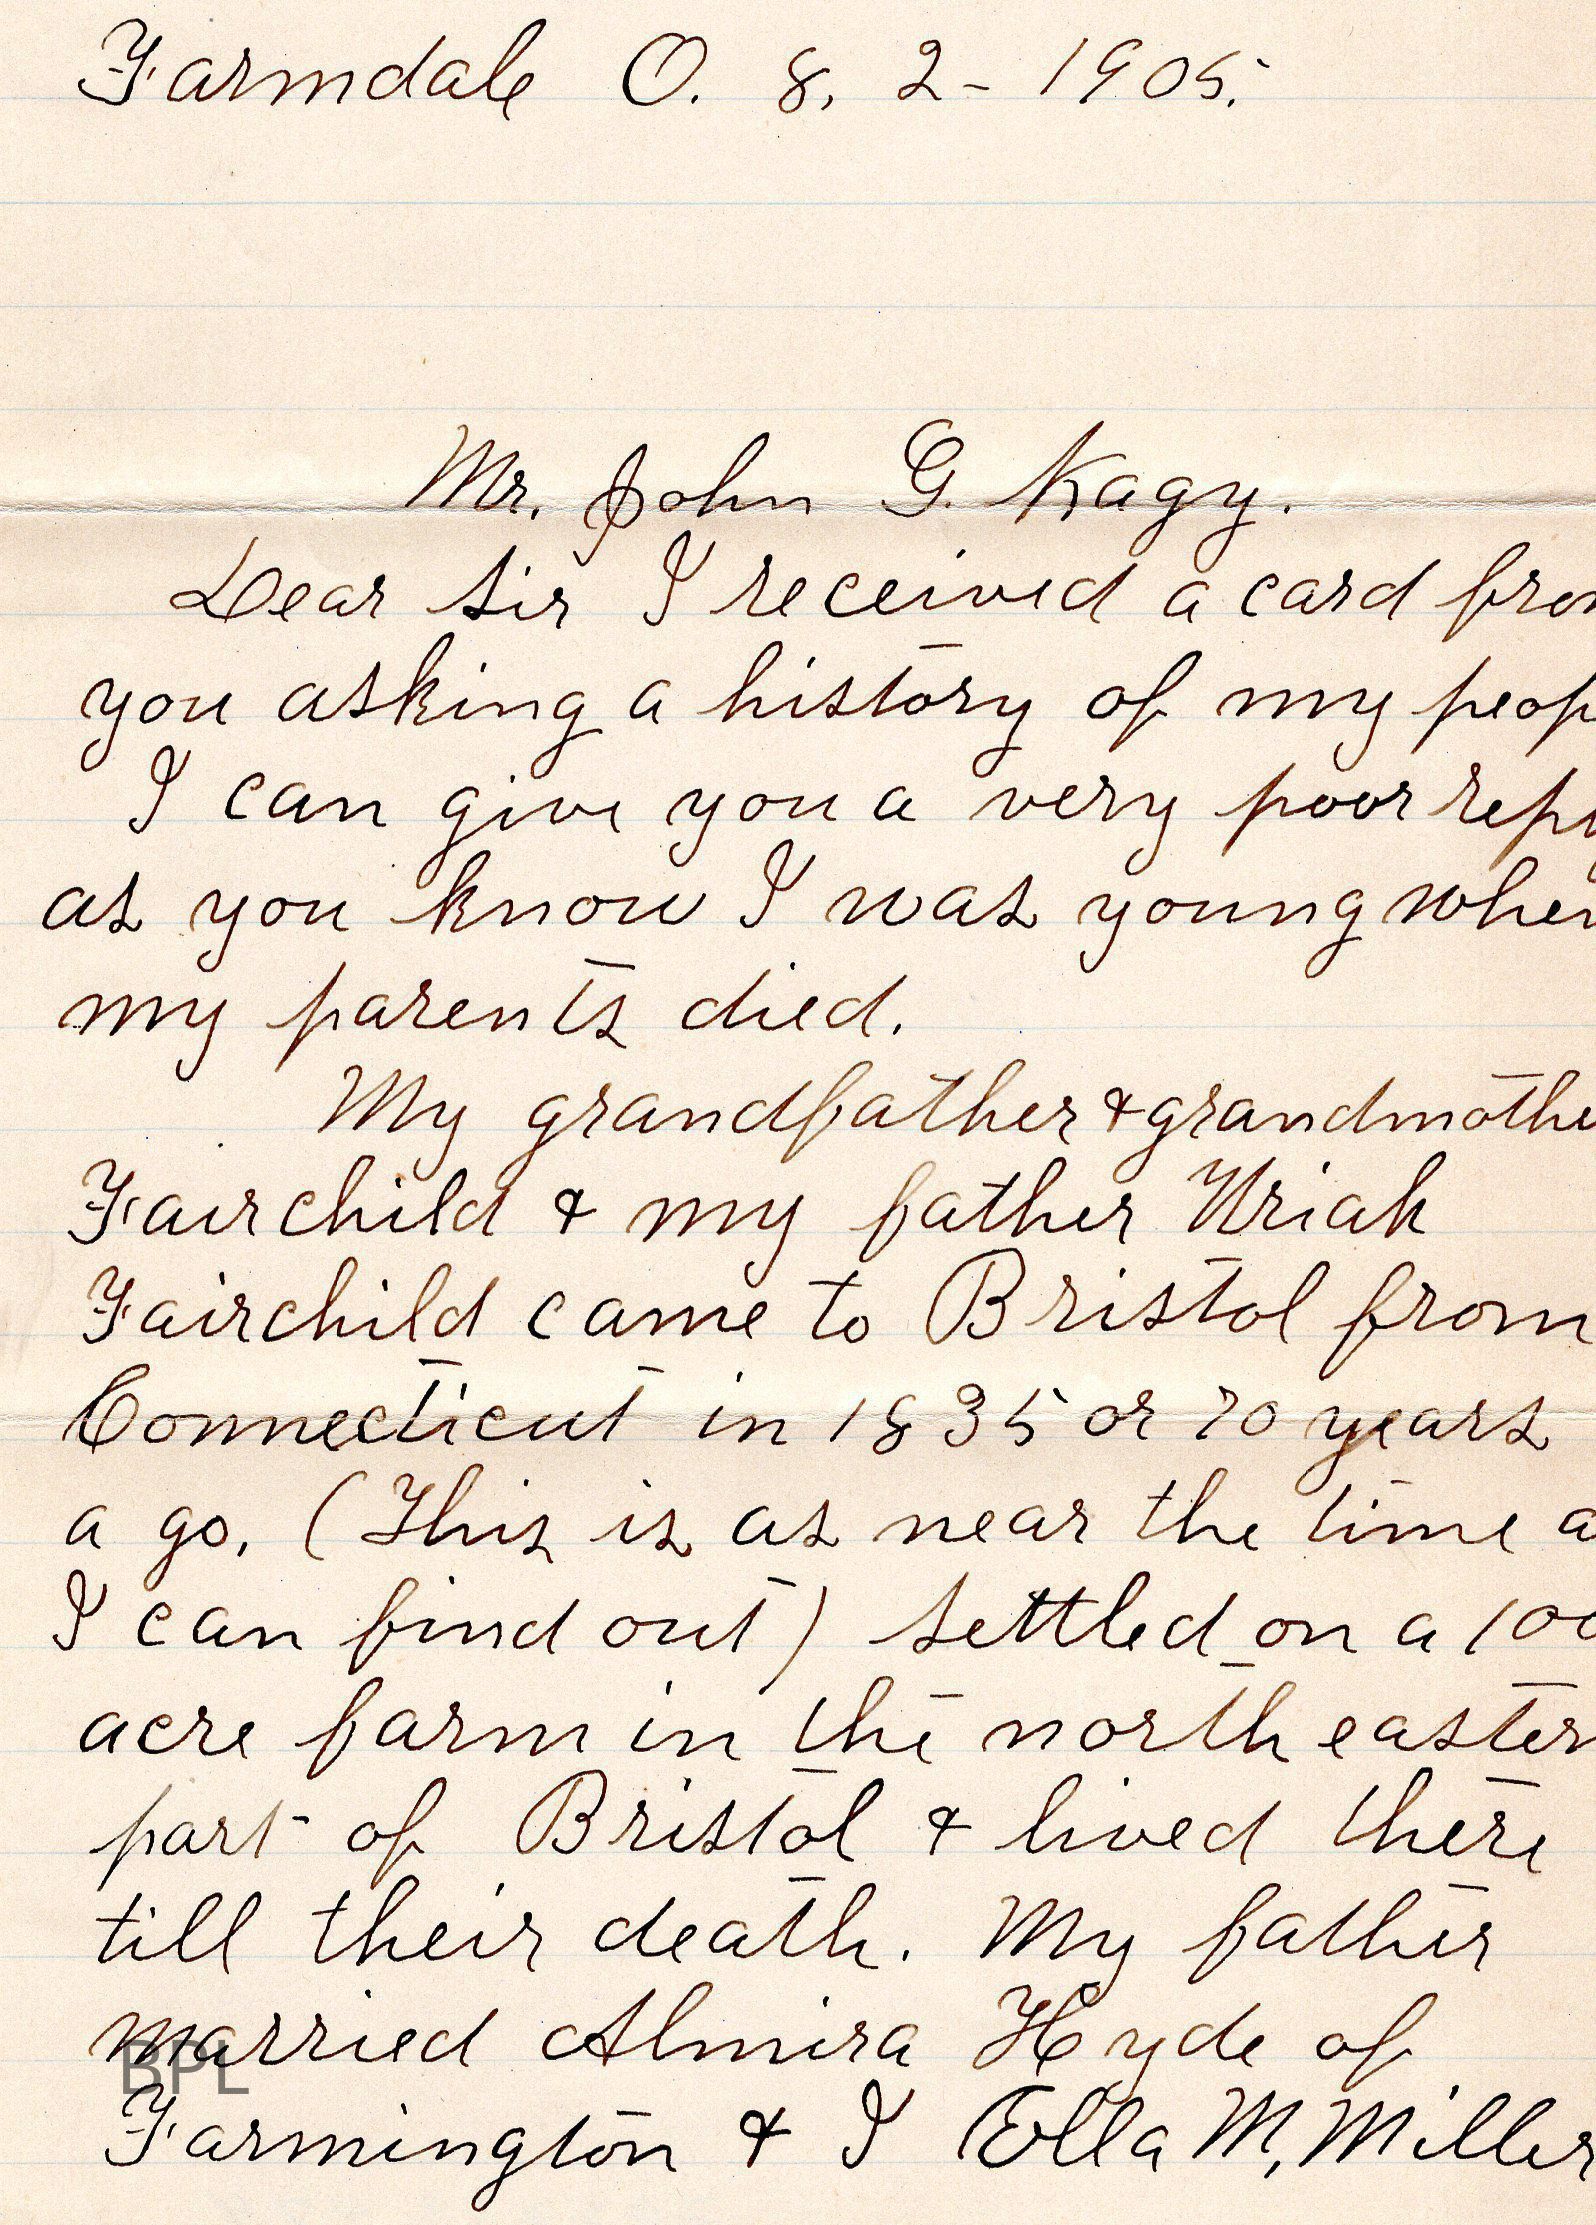 Farmdale O. 8, 2 - 1905.
Mr. John G. Kagy.
Dear Sir I received a card from
you asking a history of my peop
I can give you a very poor repl
as you know I was young when
my parents died.
My grandfather & grandmothe
Fairchild & my father Uriah
Fairchild came to Bristol from
Connecticut in 1835 or 70 years
a go. (This is as near the time a
I can find out) settled on a 100
acre farm in the north eastern
part of Bristol & lived there
till their death. My father
married Almira Hyde of
BPL
Farmington & I Ella M, Miller